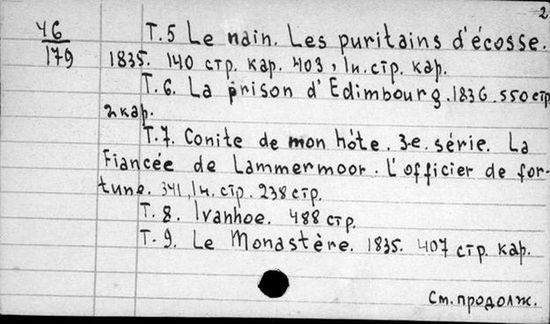 2
46
179
Т.5 Le nain. Les puritains d'écosse.
1835. 140 стр. кар. 403, 1н. стр. кар.
Т.6. La prison d'Edimbourg. 1836. 550 стр
2 кар.
Т.7. Conite de mon hôte. 3-e. série. La
Fiancée de Lammermoor. L'officier de for-
tune. 341, 1н. стр. 238 стр.
Т.8. Ivanhoe. 488 стр.
Т.9. Le Monastère. 1835. 407 стр. кар.
См. продолж.